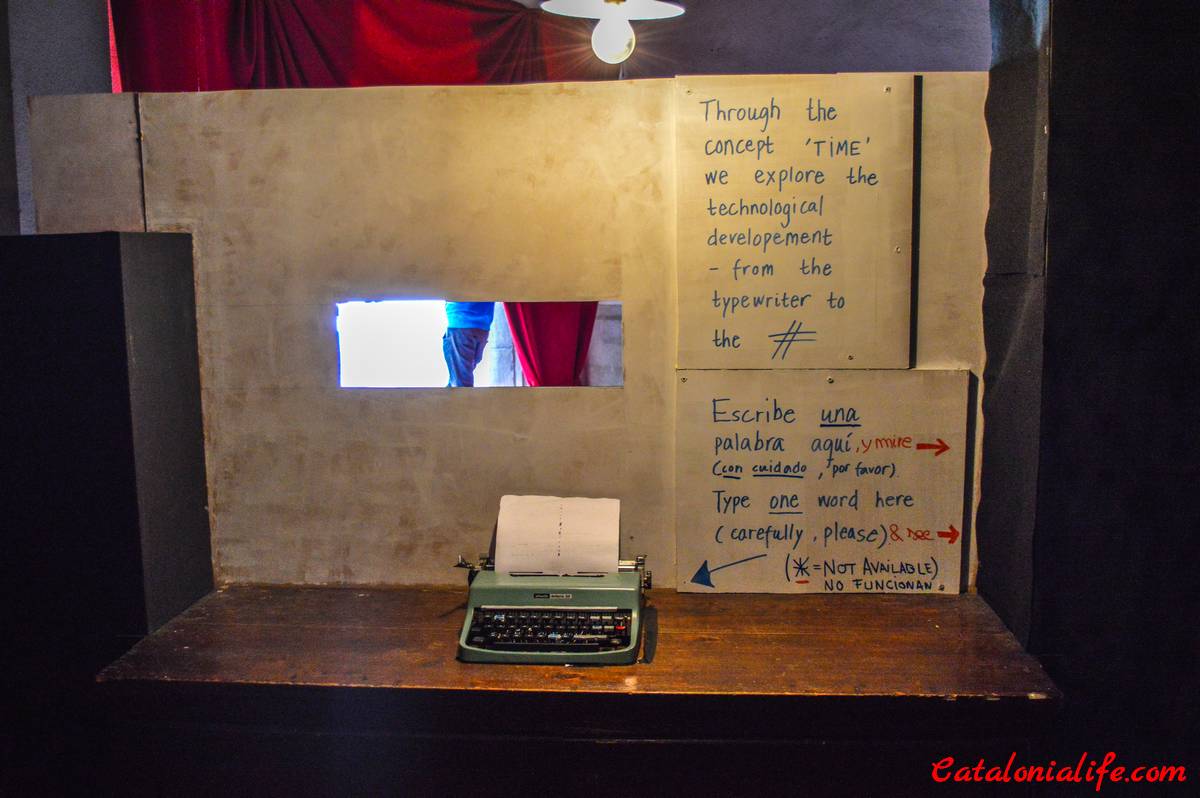 Through the
concept 'TIME'
we explore the
technological
developement
- from the
typewriter to
the #
Escribe una
palabra aquí, y mire →
(con cuidado, por favor)
Type one word here
(carefully, please) & see →
(* = NOT AVAILABLE)
NO FUNCIONAN
olivetti
Catalonialife.com